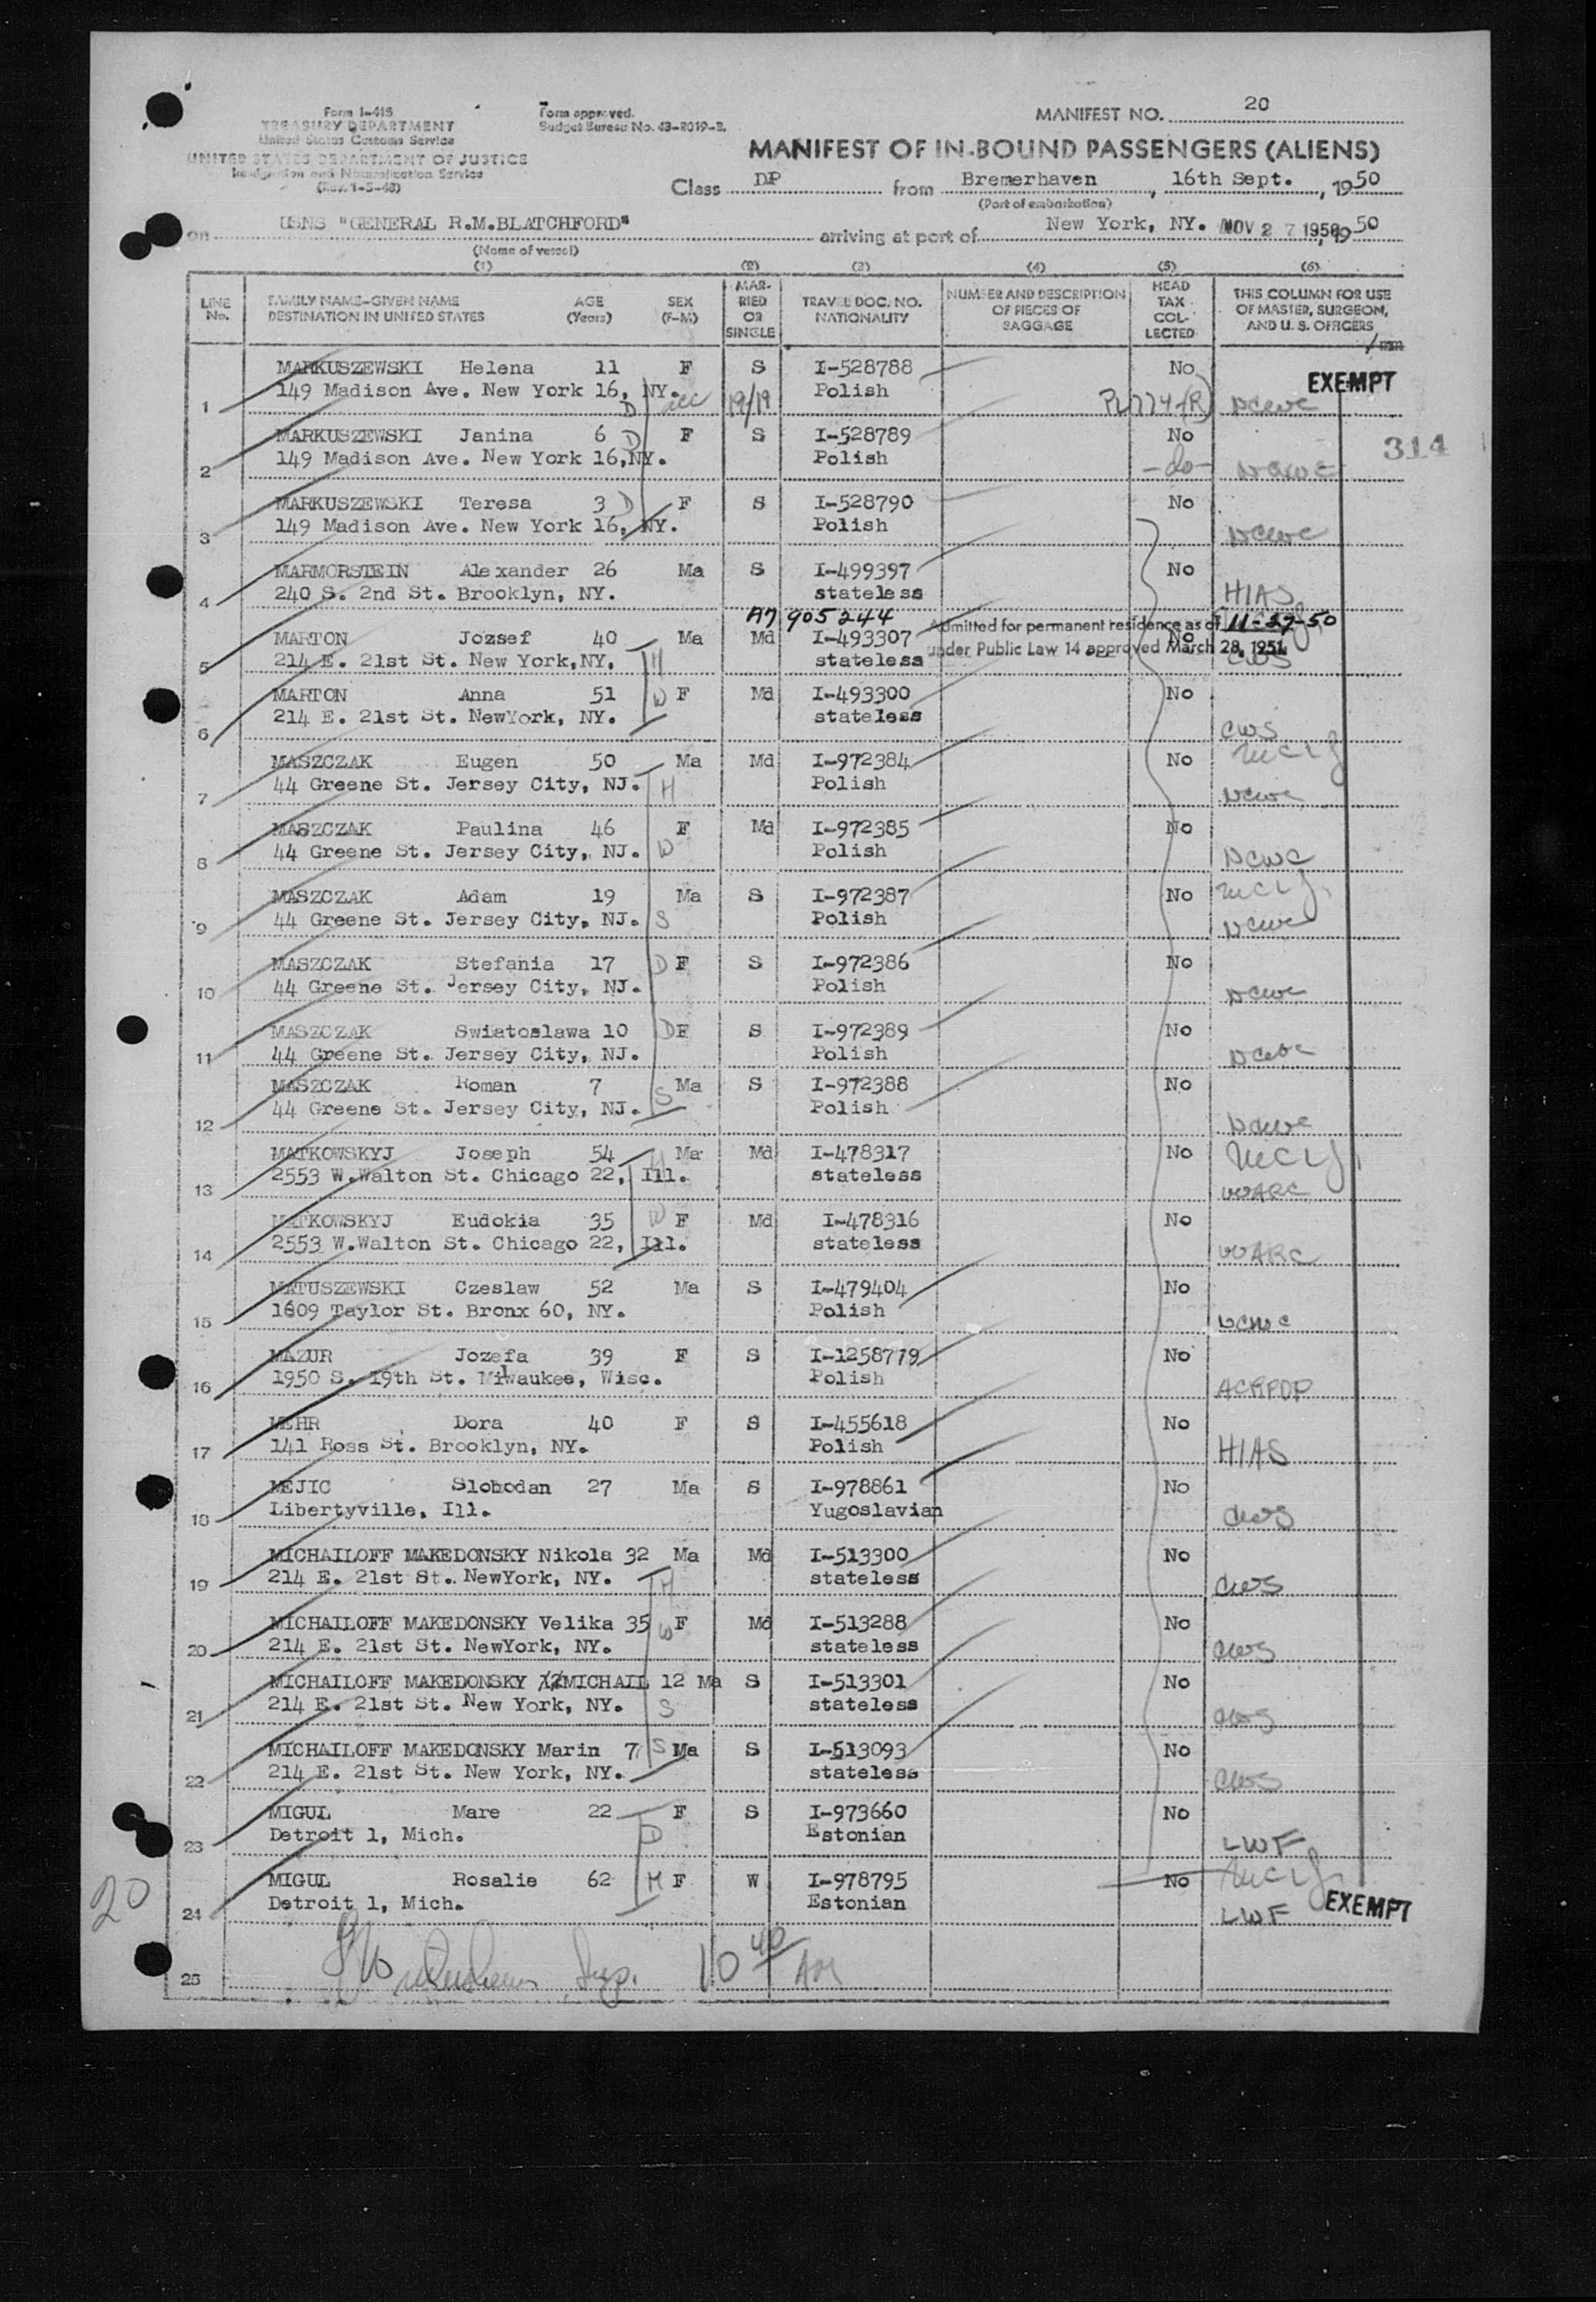 Form I-415
TREASURY DEPARTMENT
United States Customs Service
UNITED STATES DEPARTMENT OF JUSTICE
Immigration and Naturalization Service
(Rev. 1-5-48)
Form approved.
Budget Bureau No. 43-R019-2.
MANIFEST NO. 20
MANIFEST OF IN-BOUND PASSENGERS (ALIENS)
Class DP from Bremerhaven, 16th Sept., 1950
(Port of embarkation)
on USNS "GENERAL R.M.BLATCHFORD" arriving at port of New York, NY. NOV 27 1950, 1950
(Name of vessel)
(1) (2) (3) (4) (5) (6)
LINE No. FAMILY NAME-GIVEN NAME DESTINATION IN UNITED STATES AGE (Years) SEX (F-M) MARRIED OR SINGLE TRAVEL DOC. NO. NATIONALITY NUMBER AND DESCRIPTION OF PIECES OF BAGGAGE HEAD TAX COLLECTED THIS COLUMN FOR USE OF MASTER, SURGEON, AND U. S. OFFICERS
MARKUSZEWSKI Helena 11 F S I-528788 No EXEMPT
1 149 Madison Ave. New York 16, NY. D 19/19 Polish PL774(R) NCWC
MARKUSZEWSKI Janina 6 D F S I-528789 No 314
2 149 Madison Ave. New York 16,NY. Polish -do- NCWC
MARKUSZEWSKI Teresa 3 D F S I-528790 No
3 149 Madison Ave. New York 16, NY. Polish NCWC
MARMORSTEIN Alexander 26 Ma S I-499397 No
4 240 S. 2nd St. Brooklyn, NY. stateless HIAS
A7 905244 Admitted for permanent residence as of 11-27-50
MARTON Jozsef 40 Ma Md I-493307 No
under Public Law 14 approved March 28, 1951
5 214 E. 21st St. New York,NY. H stateless CWS
MARTON Anna 51 W F Md I-493300 No
6 214 E. 21st St. NewYork, NY. stateless CWS
MASZCZAK Eugen 50 Ma Md I-972384 No
7 44 Greene St. Jersey City, NJ. H Polish NCWC
MASZCZAK Paulina 46 F Md I-972385 No
8 44 Greene St. Jersey City, NJ. W Polish NCWC
MASZCZAK Adam 19 Ma S I-972387 No
9 44 Greene St. Jersey City, NJ. S Polish NCWC
MASZCZAK Stefania 17 D F S I-972386 No
10 44 Greene St. Jersey City, NJ. Polish NCWC
MASZCZAK Swiatoslawa 10 D F S I-972389 No
11 44 Greene St. Jersey City, NJ. Polish NCWC
MASZCZAK Roman 7 Ma S I-972388 No
12 44 Greene St. Jersey City, NJ. S Polish NCWC
MATKOWSKYJ Joseph 54 H Ma Md I-478317 No
13 2553 W.Walton St. Chicago 22, Ill. stateless UUARC
MATKOWSKYJ Eudokia 35 W F Md I-478316 No
14 2553 W.Walton St. Chicago 22, Ill. stateless UUARC
MATUSZEWSKI Czeslaw 52 Ma S I-479404 No
15 1609 Taylor St. Bronx 60, NY. Polish NCWC
MAZUR Jozefa 39 F S I-1258779 No
16 1950 S. 19th St. Milwaukee, Wisc. Polish ACRPDP
MEHR Dora 40 F S I-455618 No
17 141 Ross St. Brooklyn, NY. Polish HIAS
MEJIC Slobodan 27 Ma S I-978861 No
18 Libertyville, Ill. Yugoslavian CWS
MICHAILOFF MAKEDONSKY Nikola 32 Ma Md I-513300 No
19 214 E. 21st St. NewYork, NY. H stateless CWS
MICHAILOFF MAKEDONSKY Velika 35 W F Md I-513288 No
20 214 E. 21st St. NewYork, NY. stateless CWS
MICHAILOFF MAKEDONSKY 12 MICHAIL 12 Ma S I-513301 No
21 214 E. 21st St. New York, NY. S stateless CWS
MICHAILOFF MAKEDONSKY Marin 7 S Ma S I-513093 No
22 214 E. 21st St. New York, NY. stateless CWS
MIGUL Mare 22 F S I-973660 No
23 Detroit 1, Mich. D Estonian LWF
MIGUL Rosalie 62 M F W I-978795 No
24 Detroit 1, Mich. Estonian LWF EXEMPT
20
25 Insp. 10 40 AM